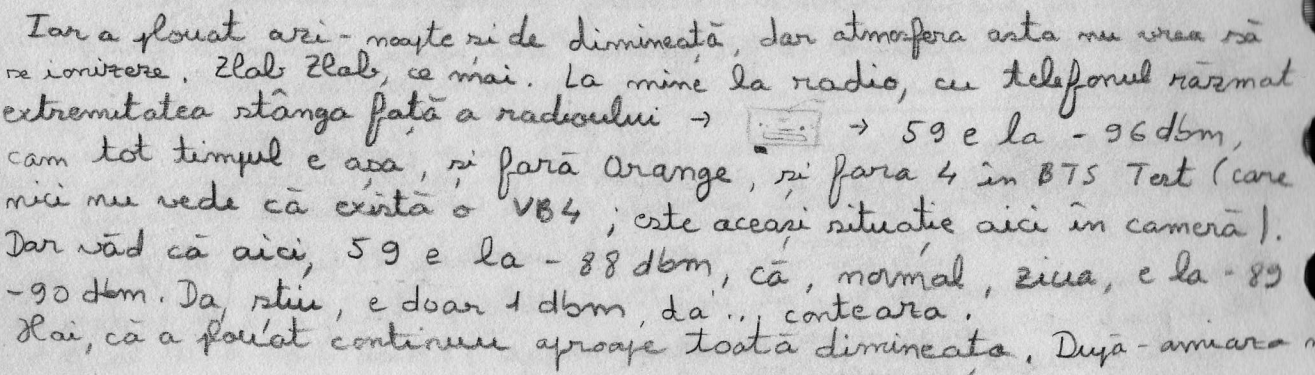 Iar a plouat azi-noapte și de dimineață, dar atmosfera asta nu vrea să
se ionizeze. Zlab Zlab, ce mai. La mine la radio, cu telefonul răzmat
extremitatea stânga față a radioului → → 59 e la -96 dbm,
cam tot timpul e așa, și fară Orange, și fara 4 în BTS Test (care
nici nu vede că există o VB4; este aceași situație aici în cameră).
Dar văd că aici, 59 e la -88 dbm, că, normal, ziua, e la -89
-90 dbm. Da, stiu, e doar 1 dbm, da... conteaza.
Hai, că a plouat continuu aproape toată dimineața. După-amiaza